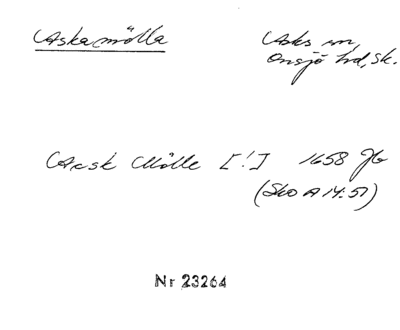 Askamölla
Asks sn,
Onsjö hd, Sk.
Acsk Mölle [!] 1658 Jb
(Sko A 14:51)
Nr 23264